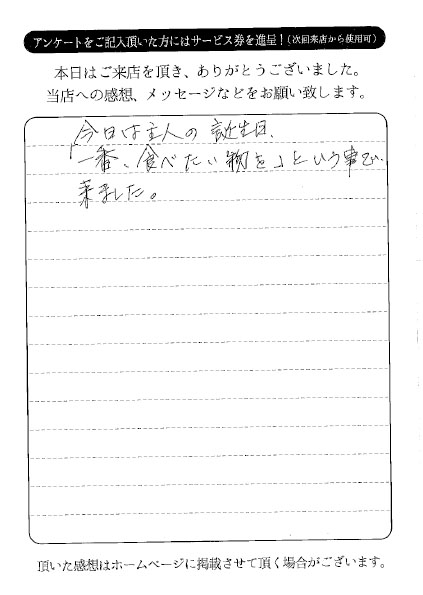 アンケートをご記入頂いた方にはサービス券を進呈!(次回来店から使用可)
本日はご来店を頂き、ありがとうございました。
当店への感想、メッセージなどをお願い致します。
今日は主人の誕生日、
「一番、食べたい物を」という事で、
来ました。
頂いた感想はホームページに掲載させて頂く場合がございます。